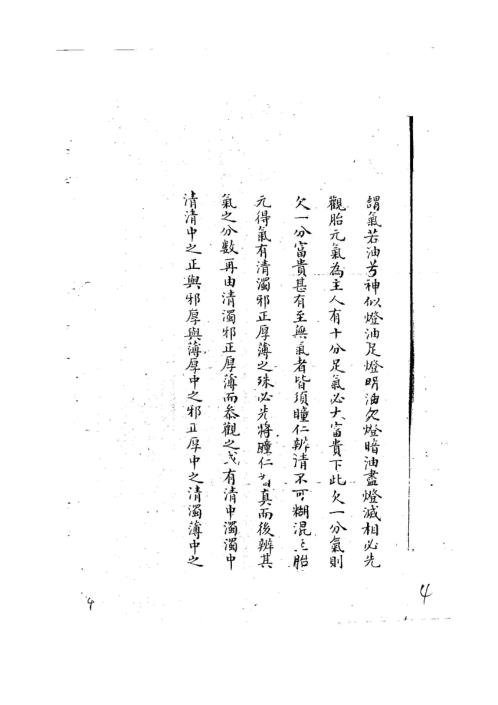 謂氣若油苦神似燈油足燈明油欠燈暗油盡燈滅相必先
觀胎元氣為主人有十分足氣必大富貴下此欠一分氣則
欠一分富貴甚有至無氣者皆須瞳仁辨清不可糊混之胎
元得氣有清濁邪正厚薄之殊必先將瞳仁看真而後辨其
氣之分數再由清濁邪正厚薄而參觀之或有清中濁濁中
清清中之正與邪厚與薄厚中之邪正厚中之清濁薄中之
4
4